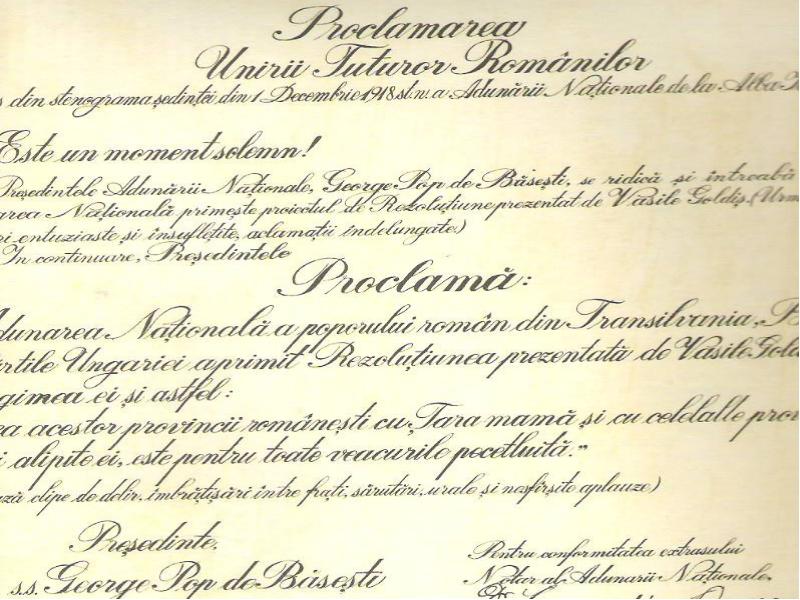 Proclamarea
Unirii Tuturor Românilor
s din stenograma ședinței din 1 Decembrie 1918 st. n. a Adunării Naționale de la Alba
Este un moment solemn!
Președintele Adunării Naționale, George Pop de Băsești, se ridică și întreabă
area Națională primește proiectul de Rezoluțiune prezentat de Vasile Goldiș. (Urm
ri entuziaste și însuflețite, aclamații îndelungate.)
In continuare, Președintele
Proclamă:
dunarea Națională a poporului român din Transilvania, B
rțile Ungariei a primit Rezoluțiunea prezentată de Vasile Gold
gimea ei și astfel:
ea acestor provincii românești cu Țara mamă și cu celelalte prov
i alipite ei, este pentru toate veacurile pecetluită."
ză clipe de delir, îmbrățișări între frați, sărutări, urale și nesfîrșite aplauze)
Președinte,
s.s. George Pop de Băsești
Pentru conformitatea extrasului
Notar al Adunării Naționale,